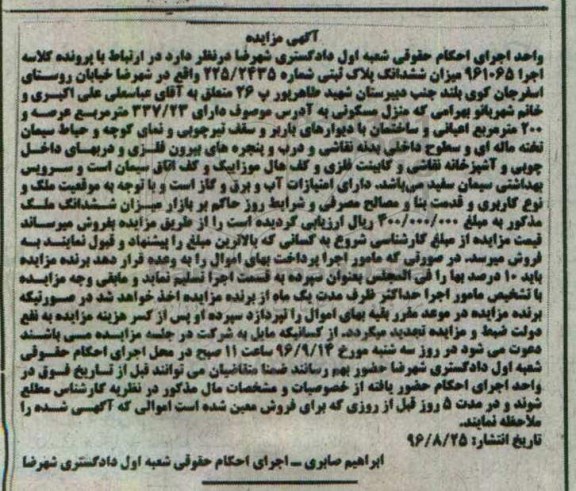 آگهی مزایده
واحد اجرای احکام حقوقی شعبه اول دادگستری شهرضا درنظر دارد در ارتباط با پرونده کلاسه
اجرا ۹۶۱۰۶۵ میزان ششدانگ پلاک ثبتی شماره ۲۲۵/۲۴۳۵ واقع در شهرضا خیابان روستای
اسفرجان کوی بلند جنب دبیرستان شهید طاهرپور پ ۲۶ متعلق به آقای عباسعلی علی اکبری و
خانم شهربانو بهرامی که منزل مسکونی به آدرس موصوف دارای ۳۳۷/۲۳ مترمربع عرصه و
۲۰۰ مترمربع اعیانی و ساختمان با دیوارهای باربر و سقف تیرچوبی و نمای کوچه و حیاط سیمان
تخته ماله ای و سطوح داخلی بدنه نقاشی و درب و پنجره های بیرون فلزی و دربهای داخل
چوبی و آشپزخانه نقاشی و کابینت فلزی و کف هال موزاییک و کف اتاق سیمان است و سرویس
بهداشتی سیمان سفید می‌باشد. دارای امتیازات آب و برق و گاز است و با توجه به موقعیت ملک و
نوع کاربری و قدمت بنا و مصالح مصرفی و شرایط روز حاکم بر بازار میزان ششدانگ ملک
مذکور به مبلغ ۴۰۰/۰۰۰/۰۰۰ ریال ارزیابی گردیده است را از طریق مزایده بفروش میرساند
قیمت مزایده از مبلغ کارشناسی شروع به کسانی که بالاترین مبلغ را پیشنهاد و قبول نمایند به
فروش میرسد. در صورتی که مامور اجرا پرداخت بهای اموال را به وعده قرار دهد برنده مزایده
باید ۱۰ درصد بها را فی المجلس بعنوان سپرده به قسمت اجرا تسلیم نماید و مابقی وجه مزایده
با تشخیص مامور اجرا حداکثر ظرف مدت یک ماه از برنده مزایده اخذ خواهد شد در صورتیکه
برنده مزایده در موعد مقرر بقیه بهای اموال را نپردازد سپرده او پس از کسر هزینه مزایده به نفع
دولت ضبط و مزایده تجدید میگردد. از کسانیکه مایل به شرکت در جلسه مزایده می باشند
دعوت می شود در روز سه شنبه مورخ ۹۶/۹/۱۴ ساعت ۱۱ صبح در محل اجرای احکام حقوقی
شعبه اول دادگستری شهرضا حضور بهم رسانند ضمنا متقاضیان می توانند قبل از تاریخ فوق در
واحد اجرای احکام حضور یافته از خصوصیات و مشخصات مال مذکور در نظریه کارشناس مطلع
شوند و در مدت ۵ روز قبل از روزی که برای فروش معین شده است اموالی که آگهی شده را
ملاحظه نمایند.
تاریخ انتشار: ۹۶/۸/۲۵
ابراهیم صابری – اجرای احکام حقوقی شعبه اول دادگستری شهرضا